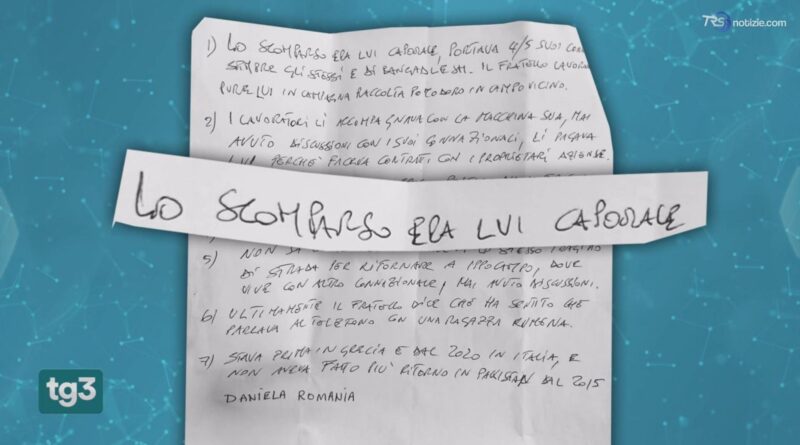 TRS notizie.com
1) LO SCOMPARSO ERA LUI CAPORALE, PORTAVA 4/5 SUOI
SEMPRE GLI STESSI E DI BANGADLESH. IL FRATELLO LAVORAVA
PURE LUI IN CAMPAGNA RACCOLTA POMODORO IN CAMPO VICINO.
2) I LAVORATORI LI ACCOMPAGNAVA CON LA MACCHINA SUA, MAI
AVUTO DISCUSSIONI CON I SUOI CONNAZIONALI, LI PAGAVA
LUI PERCHÉ FACEVA CONTRATTI CON I PROPRIETARI AZIENDE.
LO SCOMPARSO ERA LUI CAPORALE
5) NON SA STESSO
DI STRADA PER RITORNARE A IPPOCAMPO, DOVE
VIVE CON ALTRO CONNAZIONALE, MAI AVUTO DISCUSSIONI.
6) ULTIMAMENTE IL FRATELLO DICE CHE HA SENTITO CHE
PARLAVA AL TELEFONO CON UNA RAGAZZA RUMENA.
7) STAVA PRIMA IN GRECIA E DAL 2020 IN ITALIA, E
NON AVEVA FATTO PIÙ RITORNO IN PAKISTAN DAL 2015
DANIELA ROMANIA
tg3